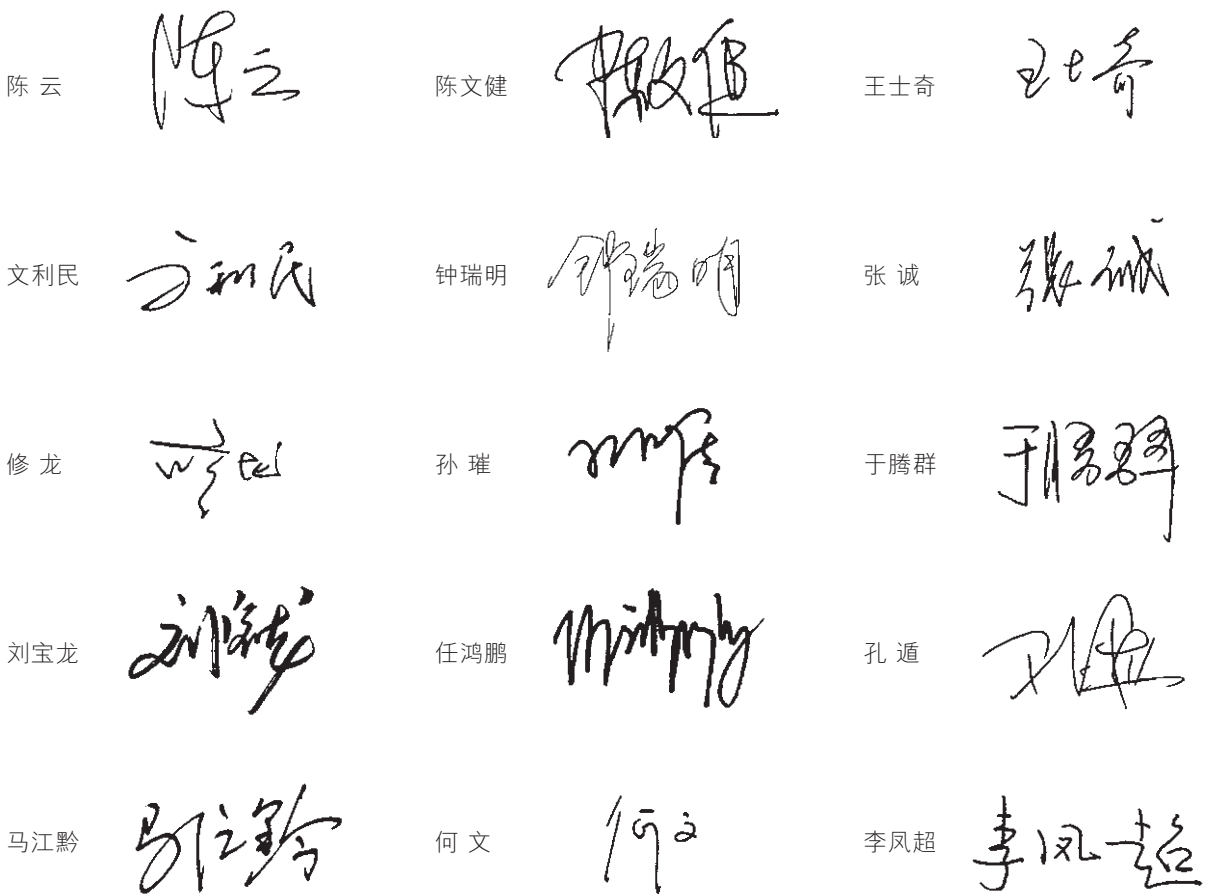 陈 云 陈云 陈文健 陈文健 王士奇 王士奇
文利民 文利民 钟瑞明 钟瑞明 张 诚 张诚
修 龙 修龙 孙 璀 孙璀 于腾群 于腾群
刘宝龙 刘宝龙 任鸿鹏 任鸿鹏 孔 遁 孔遁
马江黔 马江黔 何 文 何文 李凤超 李凤超